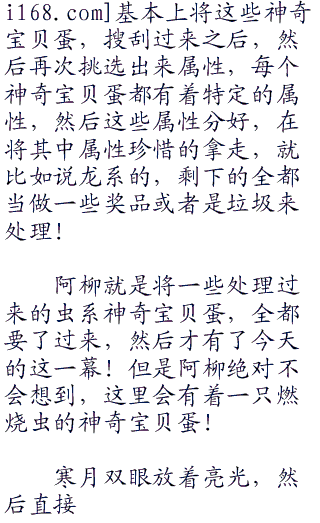 i168.com]基本上将这些神奇
宝贝蛋，搜刮过来之后，然
后再次挑选出来属性，每个
神奇宝贝蛋都有着特定的属
性，然后这些属性分好，在
将其中属性珍惜的拿走，就
比如说龙系的，剩下的全都
当做一些奖品或者是垃圾来
处理！
阿柳就是将一些处理过
来的虫系神奇宝贝蛋，全都
要了过来，然后才有了今天
的这一幕！但是阿柳绝对不
会想到，这里会有着一只燃
烧虫的神奇宝贝蛋！
寒月双眼放着亮光，然
后直接